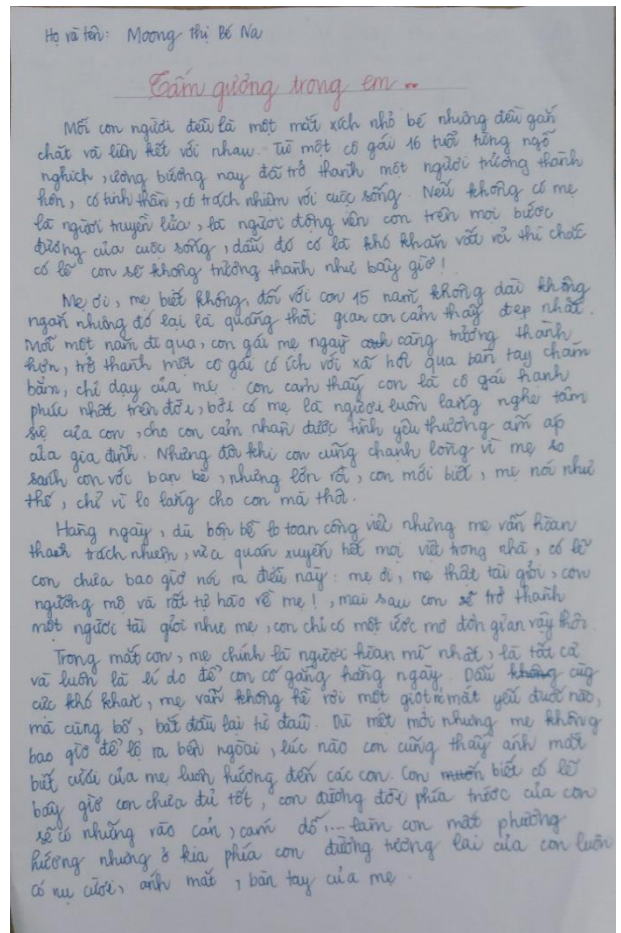 Họ và tên: Moong Thị Bé Na
Tấm gương trong em..
Mỗi con người đều là một mắt xích nhỏ bé nhưng đều gắn
chặt và liên kết với nhau. Từ một cô gái 16 tuổi từng ngỗ
nghịch, ương bướng nay đã trở thành một người trưởng thành
hơn, có tinh thần, có trách nhiệm với cuộc sống. Nếu không có mẹ
là người truyền lửa, là người động viên con trên mọi bước
đường của cuộc sống, dẫu đó có là khó khăn vất vả thì chắc
có lẽ con sẽ không trưởng thành như bây giờ!
Mẹ ơi, mẹ biết không, đối với con 15 năm, không dài không
ngắn nhưng đó lại là quãng thời gian con cảm thấy đẹp nhất.
Mỗi một năm đi qua, con gái mẹ ngày càng trưởng thành
hơn, trở thành một cô gái có ích với xã hội qua bàn tay chăm
bẵm, chỉ dạy của mẹ. con cảm thấy con là cô gái hạnh
phúc nhất trên đời, bởi có mẹ là người luôn lắng nghe tâm
sự của con, cho con cảm nhận được tình yêu thương ấm áp
của gia đình. Nhưng đôi khi con cũng chạnh lòng vì mẹ so
sánh con với bạn bè, nhưng lớn rồi, con mới biết, mẹ nói như
thế, chỉ vì lo lắng cho con mà thôi.
Hàng ngày, dù bộn bề lo toan công việc nhưng mẹ vẫn hoàn
thành trách nhiệm, vừa quán xuyến hết mọi việc trong nhà, có lẽ
con chưa bao giờ nói ra điều này: mẹ ơi, mẹ thật tài giỏi, con
ngưỡng mộ và rất tự hào về mẹ!, mai sau con sẽ trở thành
một người tài giỏi như mẹ, con chỉ có một ước mơ đơn giản vậy thôi.
Trong mắt con, mẹ chính là người hoàn mĩ nhất, là tất cả
và luôn là lí do để con cố gắng hàng ngày. Dẫu cùng
cực khó khăn, mẹ vẫn không hề rơi một giọt nước mắt yếu đuối nào,
mà củng cố, bắt đầu lại từ đầu. Dù mệt mỏi nhưng mẹ không
bao giờ để lộ ra bên ngoài, lúc nào con cũng thấy ánh mắt
biết cười của mẹ luôn hướng đến các con. Con biết có lẽ
bây giờ con chưa đủ tốt, con đường đời phía trước của con
sẽ có những rào cản, cám dỗ,... làm con mất phương
hướng nhưng ở kia phía con đường tương lai của con luôn
có nụ cười, ánh mắt, bàn tay của mẹ.